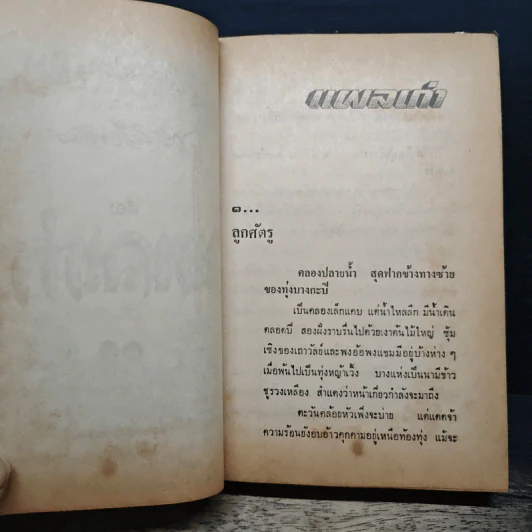 แผลเก่า
๑...
ลูกศัตรู
คลองปลายน้ำ สุดฟากข้างทางซ้าย
ของทุ่งบางกะปิ
เป็นคลองเล็กแคบ แต่น้ำไหลลึก มีน้ำเดิน
ตลอดปี สองฝั่งราบรื่นไปด้วยเงาต้นไม้ใหญ่ ซุ้ม
เชิงของเถาวัลย์และพงอ้อพงแขมมีอยู่บ้างห่าง ๆ
เมื่อพ้นไปเป็นทุ่งหญ้าเวิ้ง บางแห่งเป็นนามีข้าว
ชูรวงเหลือง สำแดงว่าหน้าเกี่ยวกำลังจะมาถึง
ตะวันคล้อยหัวเพิ่งจะบ่าย แต่แดดจ้า
ความร้อนยังอบอ้าวคุกคามอยู่เหนือท้องทุ่ง แม้จะ